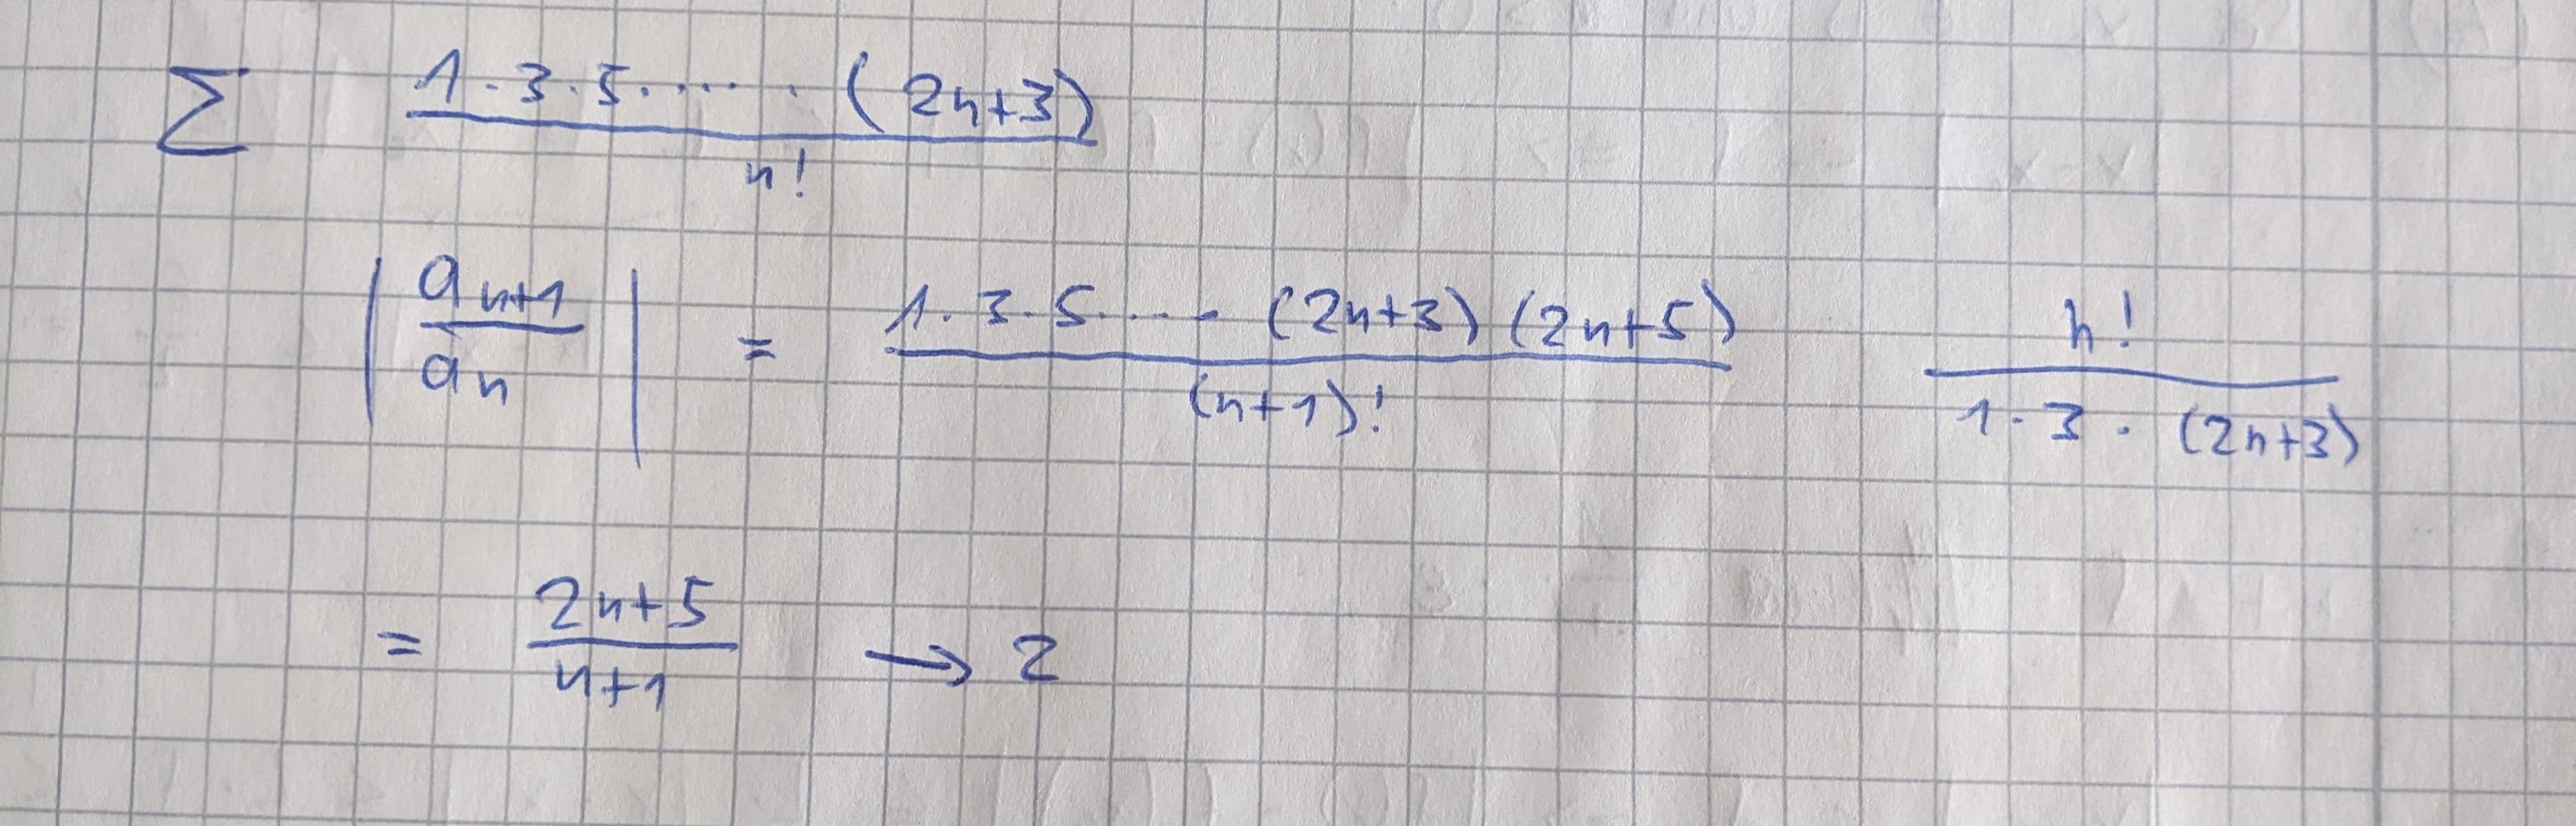 ∑ 1·3·5·····(2n+3) / n!
|a_{n+1} / a_n| = 1·3·5····(2n+3)(2n+5) / (n+1)! n! / 1·3·(2n+3)
= 2n+5 / n+1 → 2